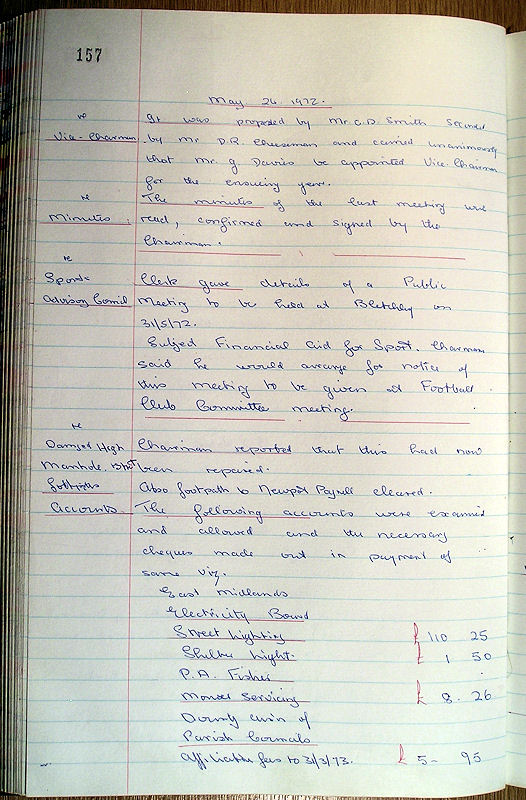 157
May 24. 1972.
re It was proposed by Mr C.D. Smith Seconded
Vice-Chairman by Mr D.R. Cheeseman and carried unanimously
that Mr. G. Davies be appointed Vice. Chairman
for the ensuing year.
re The minutes of the last meeting were
Minutes: read, confirmed and signed by the
Chairman.
re
Sports Clerk gave details of a Public
Advisory Council Meeting to be held at Bletchley on
31/5/72.
Subject Financial Aid for Sport. Chairman
said he would arrange for notice of
this meeting to be given at Football
Club Committee meeting.
re
Damged High Chairman reported that this had now
Manhole. been repaired.
footpaths Also footpath to Newport Pagnell cleared.
Accounts. The following accounts were examined
and allowed and the necessary
cheques made out in payment of
same viz.
East Midlands
Electricity Board
Street Lighting £ 110 25
Shelter Light. £ 1 50
P.A. Fisher
Mower Servicing £ 8. 26
County of
Parish Councils
Affiliation fees to 31/3/73. £ 5- 95